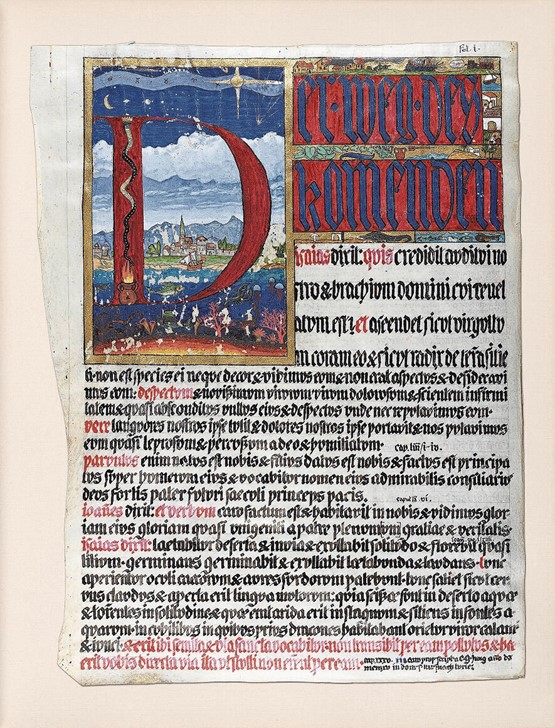 fol. i.
Der weg des
komenden
Isaias dixit: quis credidit auditui no
stro & brachium domini cui revel
atum est? et ascendet sicut virgultu
m coram eo & sicut radix de terra sitie
ti non est species ei neque decor & vidimus eum & non erat aspectus & desideravi
mus eum: despectum & novissimum virorum virum dolorum & scientem infirmi
tatem & quasi absconditus vultus eius & despectus unde nec reputavimus eum.
vere languores nostros ipse tulit & dolores nostros ipse portavit & nos putavimus
eum quasi leprosum & percussum a deo & humiliatum. cap. liii/i-iv.
parvulus enim natus est nobis & filius datus est nobis & factus est principa
tus super humerum eius & vocabitur nomen eius admirabilis consiliariu
deus fortis pater futuri saeculi princeps pacis. caput ix. vi.
ioannes dixit: et verbum caro factum est & habitavit in nobis & vidimus glor
iam eius gloriam quasi unigeniti a patre plenum gratiae & veritatis.
Isaias dixit: laetabitur deserta & invia & exsultabit solitudo & florebit quasi
lilium. germinans germinabit & exsultabit laetabunda & laudans. tunc
aperientur oculi caecorum & aures surdorum patebunt. tunc saliet sicut cer
vus claudus & aperta erit lingua mutorum: quia scissae sunt in deserto aquae
& torrentes in solitudine & quae erat arida erit in stagnum & sitiens in fontes a
quarum. in cubilibus in quibus prius dracones habitabant orietur viror calami
& iunci. & erit ibi semita & via sancta vocabitur. non transibit per eam pollutus & ha
ec erit vobis directa via ita ut stulti non errent per eam. cap. xxxv. manu propria scriptum a C.G. Jung anno do
mini mcmxv in domu sua